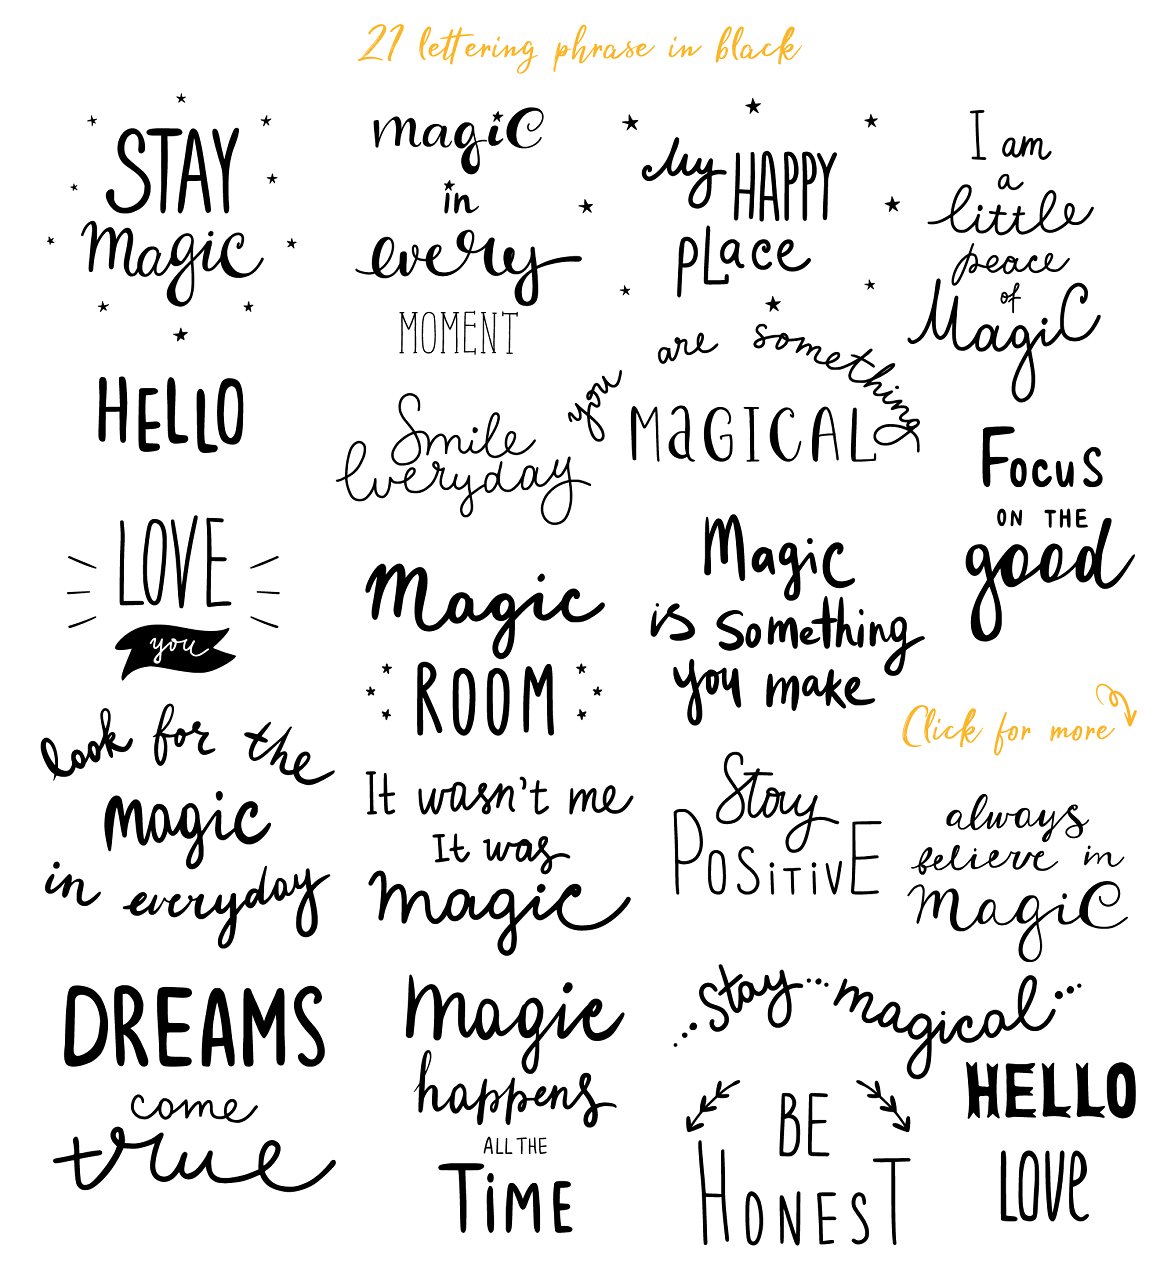 21 lettering phrase in black
STAY
Magic
magic
in
every
MOMENT
My HAPPY
PLace
I am
a
little
peace
of
Magic
HELLO
Smile
Everyday
you are something
MaGICAL
Focus
ON THE
good
LOVE
you
Magic
ROOM
Magic
is Something
you make
Click for more
look for the
Magic
in everyday
It wasn't me
It was
magic
Stay
PoSiTivE
always
believe in
Magic
DREAMS
come
true
Magic
happens
ALL THE
TiME
...stay...magical...
BE
HONEST
HELLO
LOVe